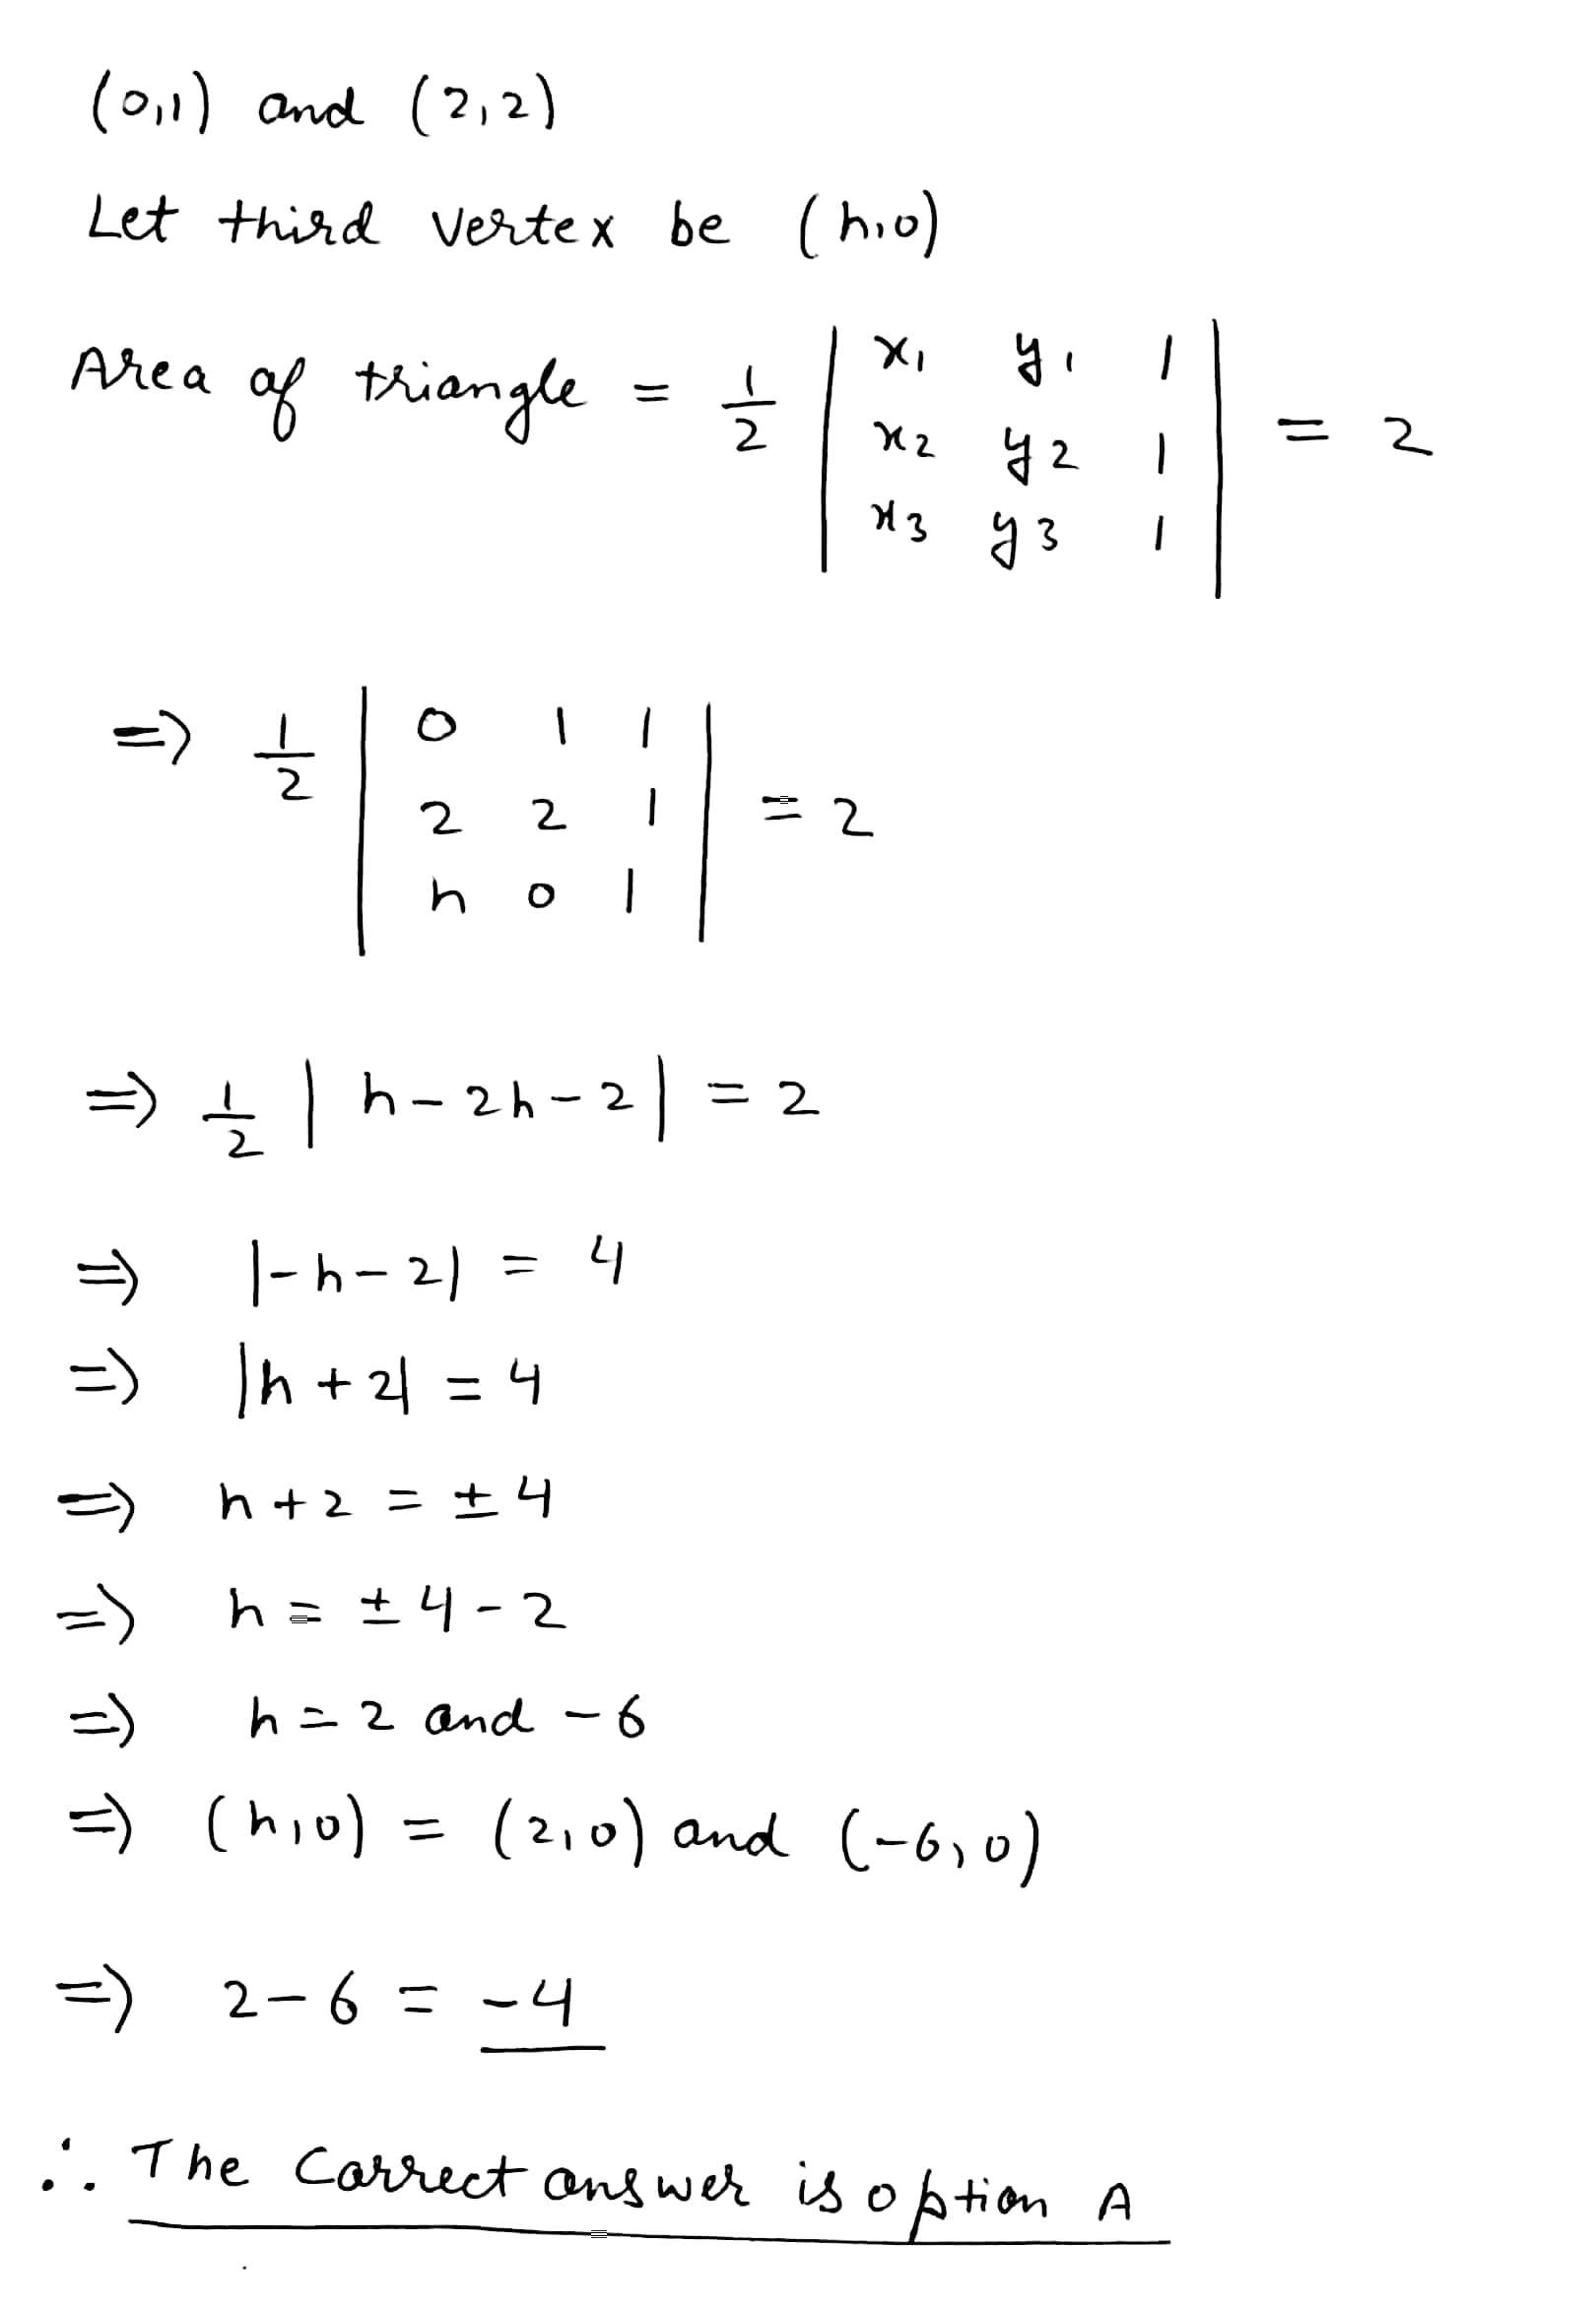 (0,1) and (2,2)
Let third vertex be (h,0)
Area of triangle = 1/2 | x1 y1 1 | = 2
| x2 y2 1 |
| x3 y3 1 |
=> 1/2 | 0 1 1 | = 2
| 2 2 1 |
| h 0 1 |
=> 1/2 | h - 2h - 2 | = 2
=> |-h - 2| = 4
=> |h + 2| = 4
=> h + 2 = ± 4
=> h = ± 4 - 2
=> h = 2 and - 6
=> (h,0) = (2,0) and (-6,0)
=> 2 - 6 = -4
∴ The Correct answer is option A